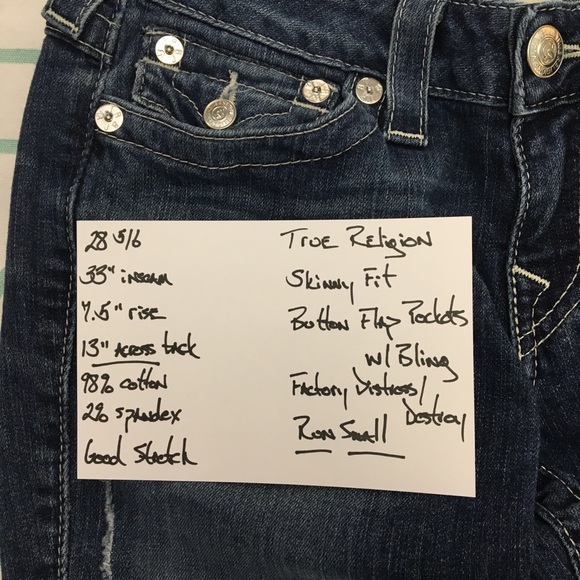 28 5/6
33" inseam
7.5" rise
13" Across back
98% cotton
2% spandex
Good Stretch
True Religion
Skinny Fit
Button Flap Pockets
w/ Bling
Factory Distress/
Destroy
Run Small